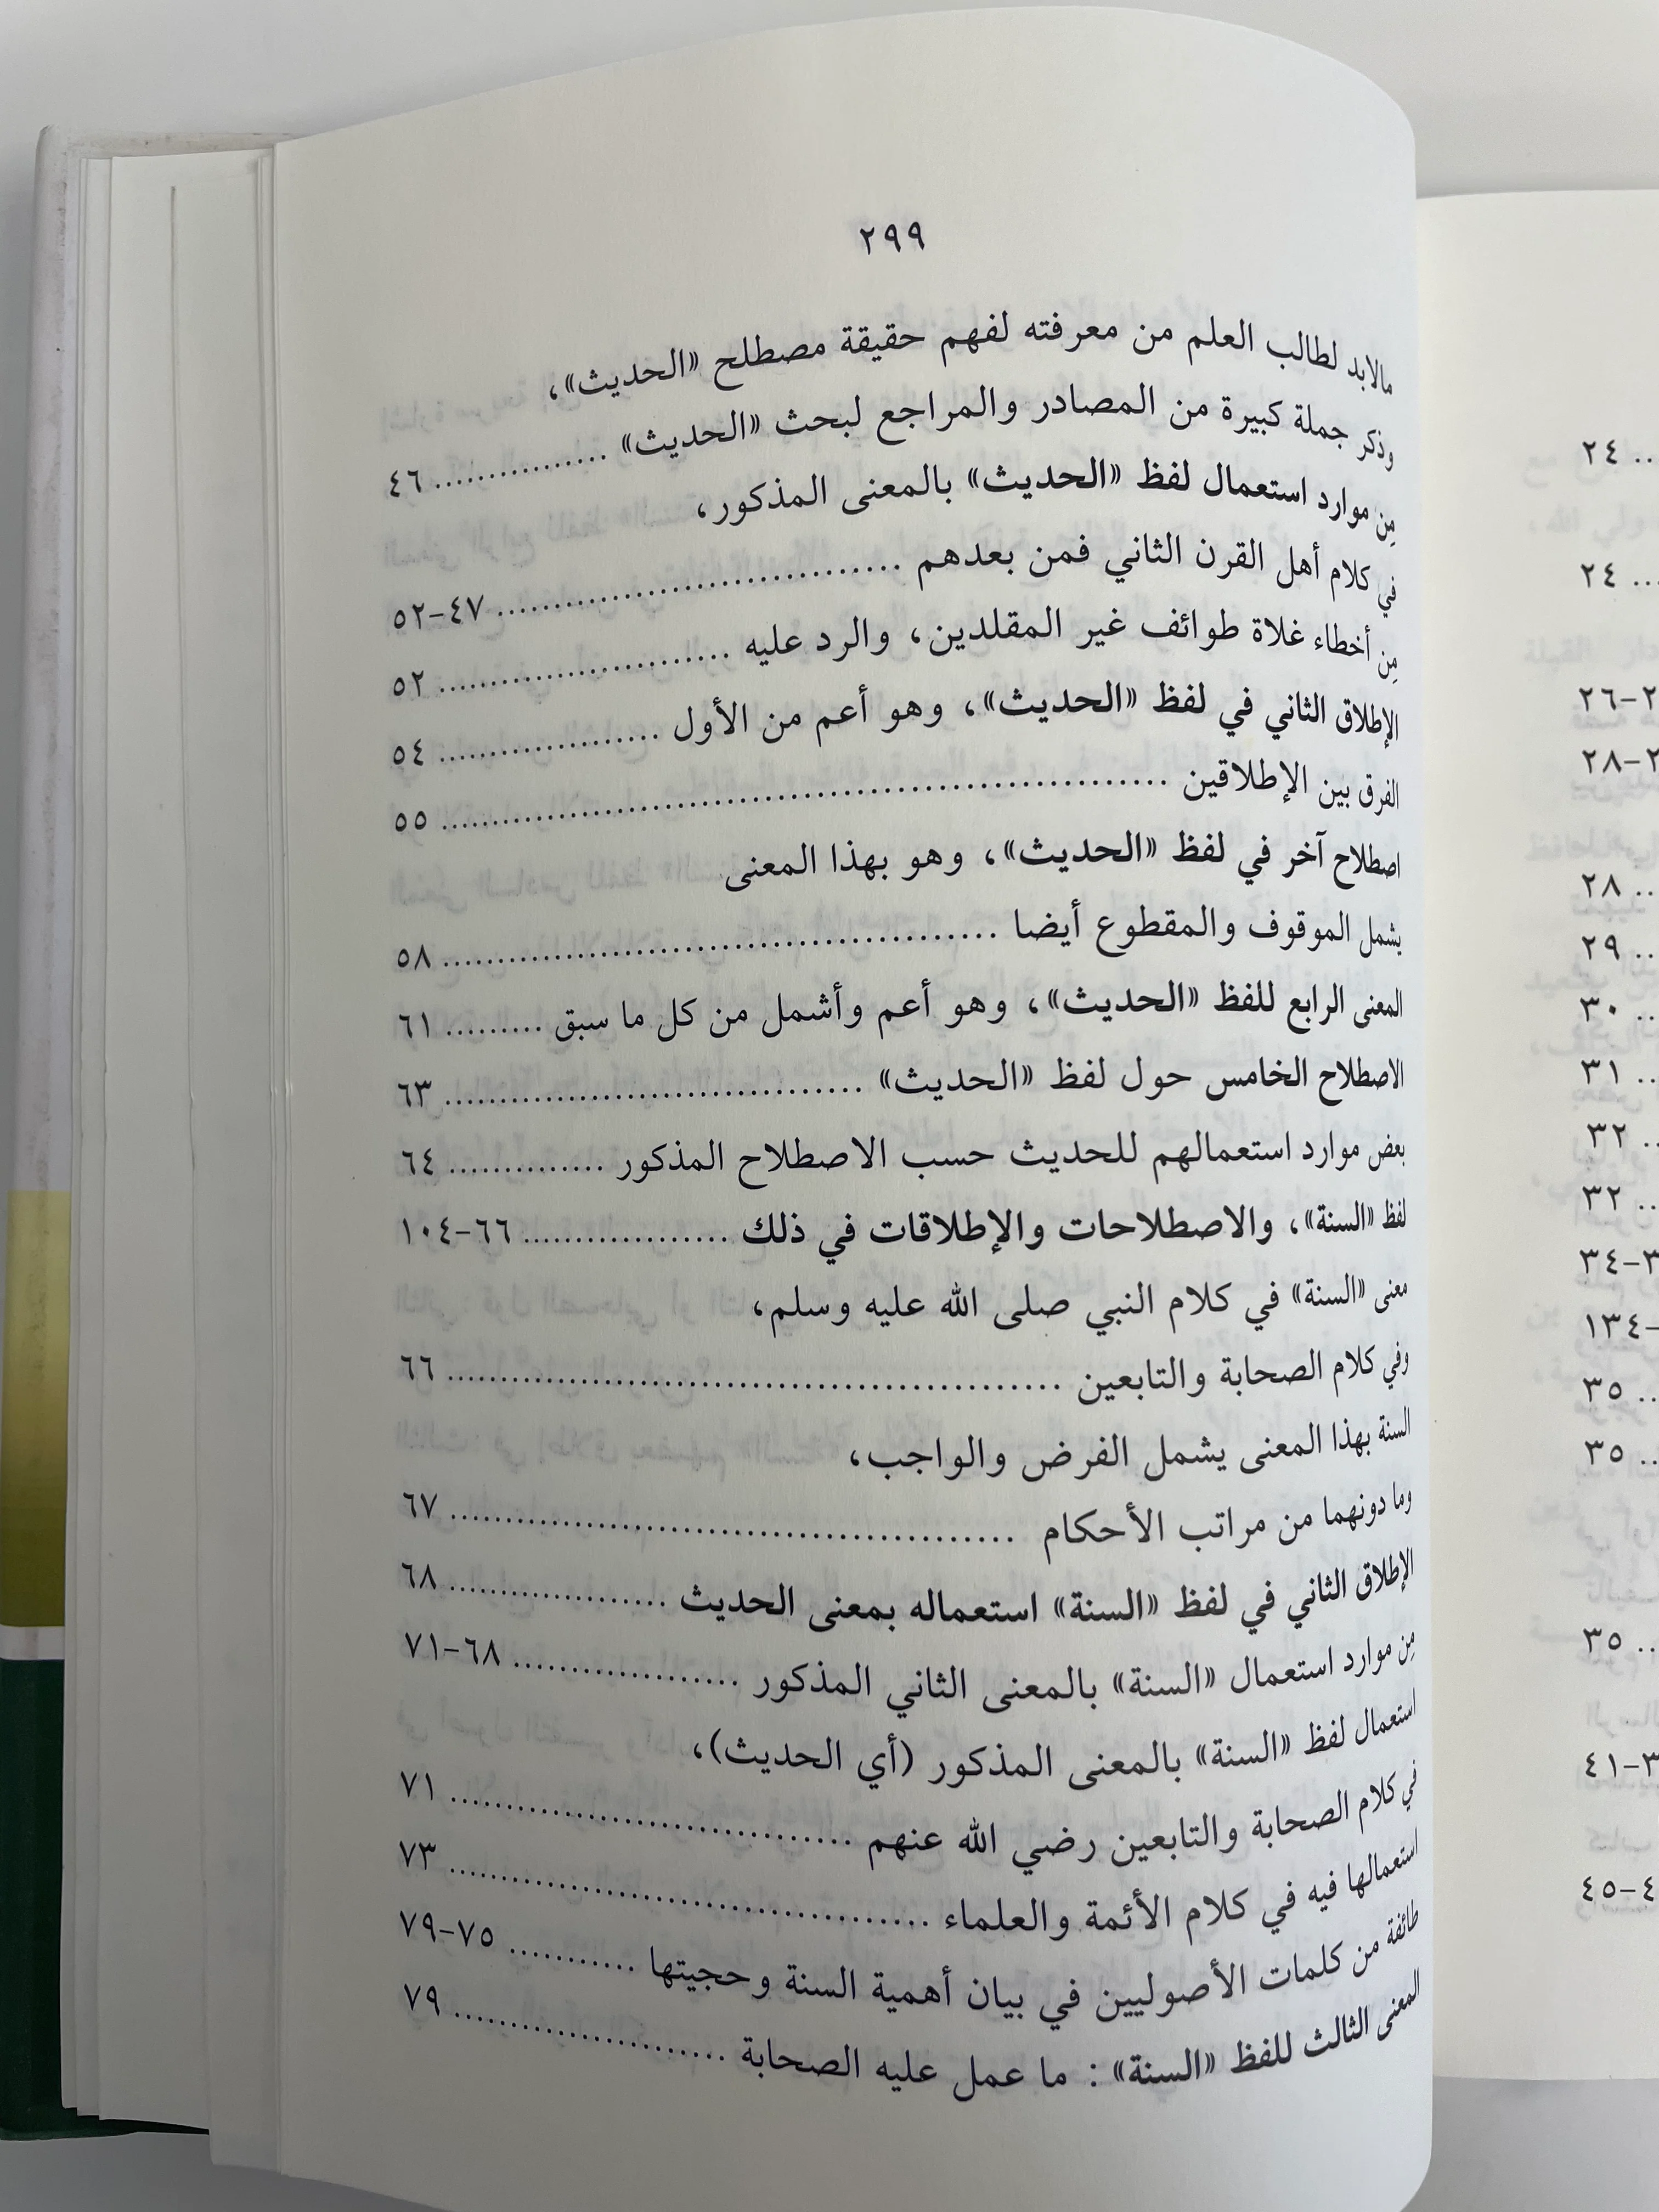 ٢٩٩
مالابد لطالب العلم من معرفته لفهم حقيقة مصطلح «الحديث»،
وذكر جملة كبيرة من المصادر والمراجع لبحث «الحديث» ............... ٤٦
مِن موارد استعمال لفظ «الحديث» بالمعنى المذكور،
في كلام أهل القرن الثاني فمن بعدهم ................................. ٤٧-٥٢
مِن أخطاء غلاة طوائف غير المقلدين، والرد عليه ......................... ٥٢
الإطلاق الثاني في لفظ «الحديث»، وهو أعم من الأول .................... ٥٤
الفرق بين الإطلاقين ................................................................ ٥٥
اصطلاح آخر في لفظ «الحديث»، وهو بهذا المعنى
يشمل الموقوف والمقطوع أيضا ................................................ ٥٨
المعنى الرابع للفظ «الحديث»، وهو أعم وأشمل من كل ما سبق ......... ٦١
الاصطلاح الخامس حول لفظ «الحديث» .................................... ٦٣
بعض موارد استعمالهم للحديث حسب الاصطلاح المذكور .............. ٦٤
لفظ «السنة»، والاصطلاحات والإطلاقات في ذلك ................... ٦٦-١٠٤
معنى «السنة» في كلام النبي صلى الله عليه وسلم،
وفي كلام الصحابة والتابعين ..................................................... ٦٦
السنة بهذا المعنى يشمل الفرض والواجب،
وما دونهما من مراتب الأحكام ................................................. ٦٧
الإطلاق الثاني في لفظ «السنة» استعماله بمعنى الحديث ................... ٦٨
مِن موارد استعمال «السنة» بالمعنى الثاني المذكور .................... ٦٨-٧١
استعمال لفظ «السنة» بالمعنى المذكور (أي الحديث)،
في كلام الصحابة والتابعين رضي الله عنهم ................................... ٧١
استعمالها فيه في كلام الأئمة والعلماء .......................................... ٧٣
طائفة من كلمات الأصوليين في بيان أهمية السنة وحجيتها ........... ٧٥-٧٩
المعنى الثالث للفظ «السنة» : ما عمل عليه الصحابة ........................ ٧٩
.. ٢٤
... ٢٤
٢-٢٦
٢-٢٨
.. ٢٨
.. ٢٩
.. ٣٠
.. ٣١
.. ٣٢
.. ٣٢
٣-٣٤
-١٣٤
.. ٣٥
.. ٣٥
.. ٣٥
٣-٤١
٤-٤٥